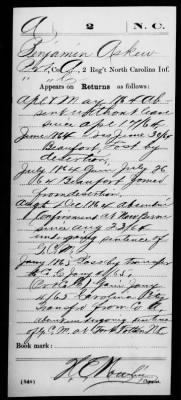 A 2 N.C.
Benjamin Askew
Co. A, 2 Reg't North Carolina Inf.
Appears on Returns as follows:
Apl & May 1864 Ab-
sent without leave
since Apl 1864
June 1864 Des June 30/64
Beaufort Lost by
desertion
July 1864 Gain July 26
64 Beaufort Joined
from desertion
Augt Dec 1864 absent in
Confinement at New Berne
since Aug 23/64
undergoing sentence of
G.C.M.
Jany 1865 Loss by transfer
to Co Jany 65.
Gain Jany
65 Carolina City
Transfd from Co
absent undergoing sentence
of G.C.M. at Fort Totten N.C.
Book mark:
(546) Copyist.